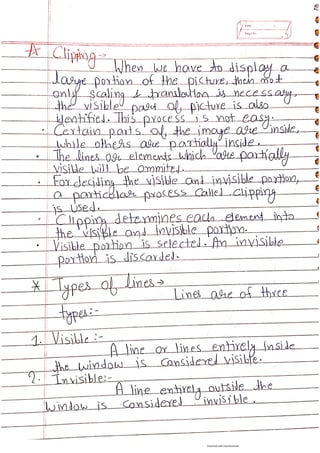 * Cliping →
When we have to display a
large portion of the picture, then not
only scaling & translation is necessary,
the visible part of picture is also
identified. This process is not easy.
• Certain parts of the image are inside,
while others are partially inside.
• The lines or elements which are partially
visible will be ommited.
For deciding the visible and invisible portion,
a particular process called clipping
is used.
• Clipping determines each element into
the visible and invisible portion.
• Visible portion is selected. An invisible
portion is discarded.
* Types of lines →
Lines are of three
types :-
1. Visible :-
A line or lines entirely inside
the window is considered visible.
2. Invisible:-
A line entirely outside the
window is considered invisible.